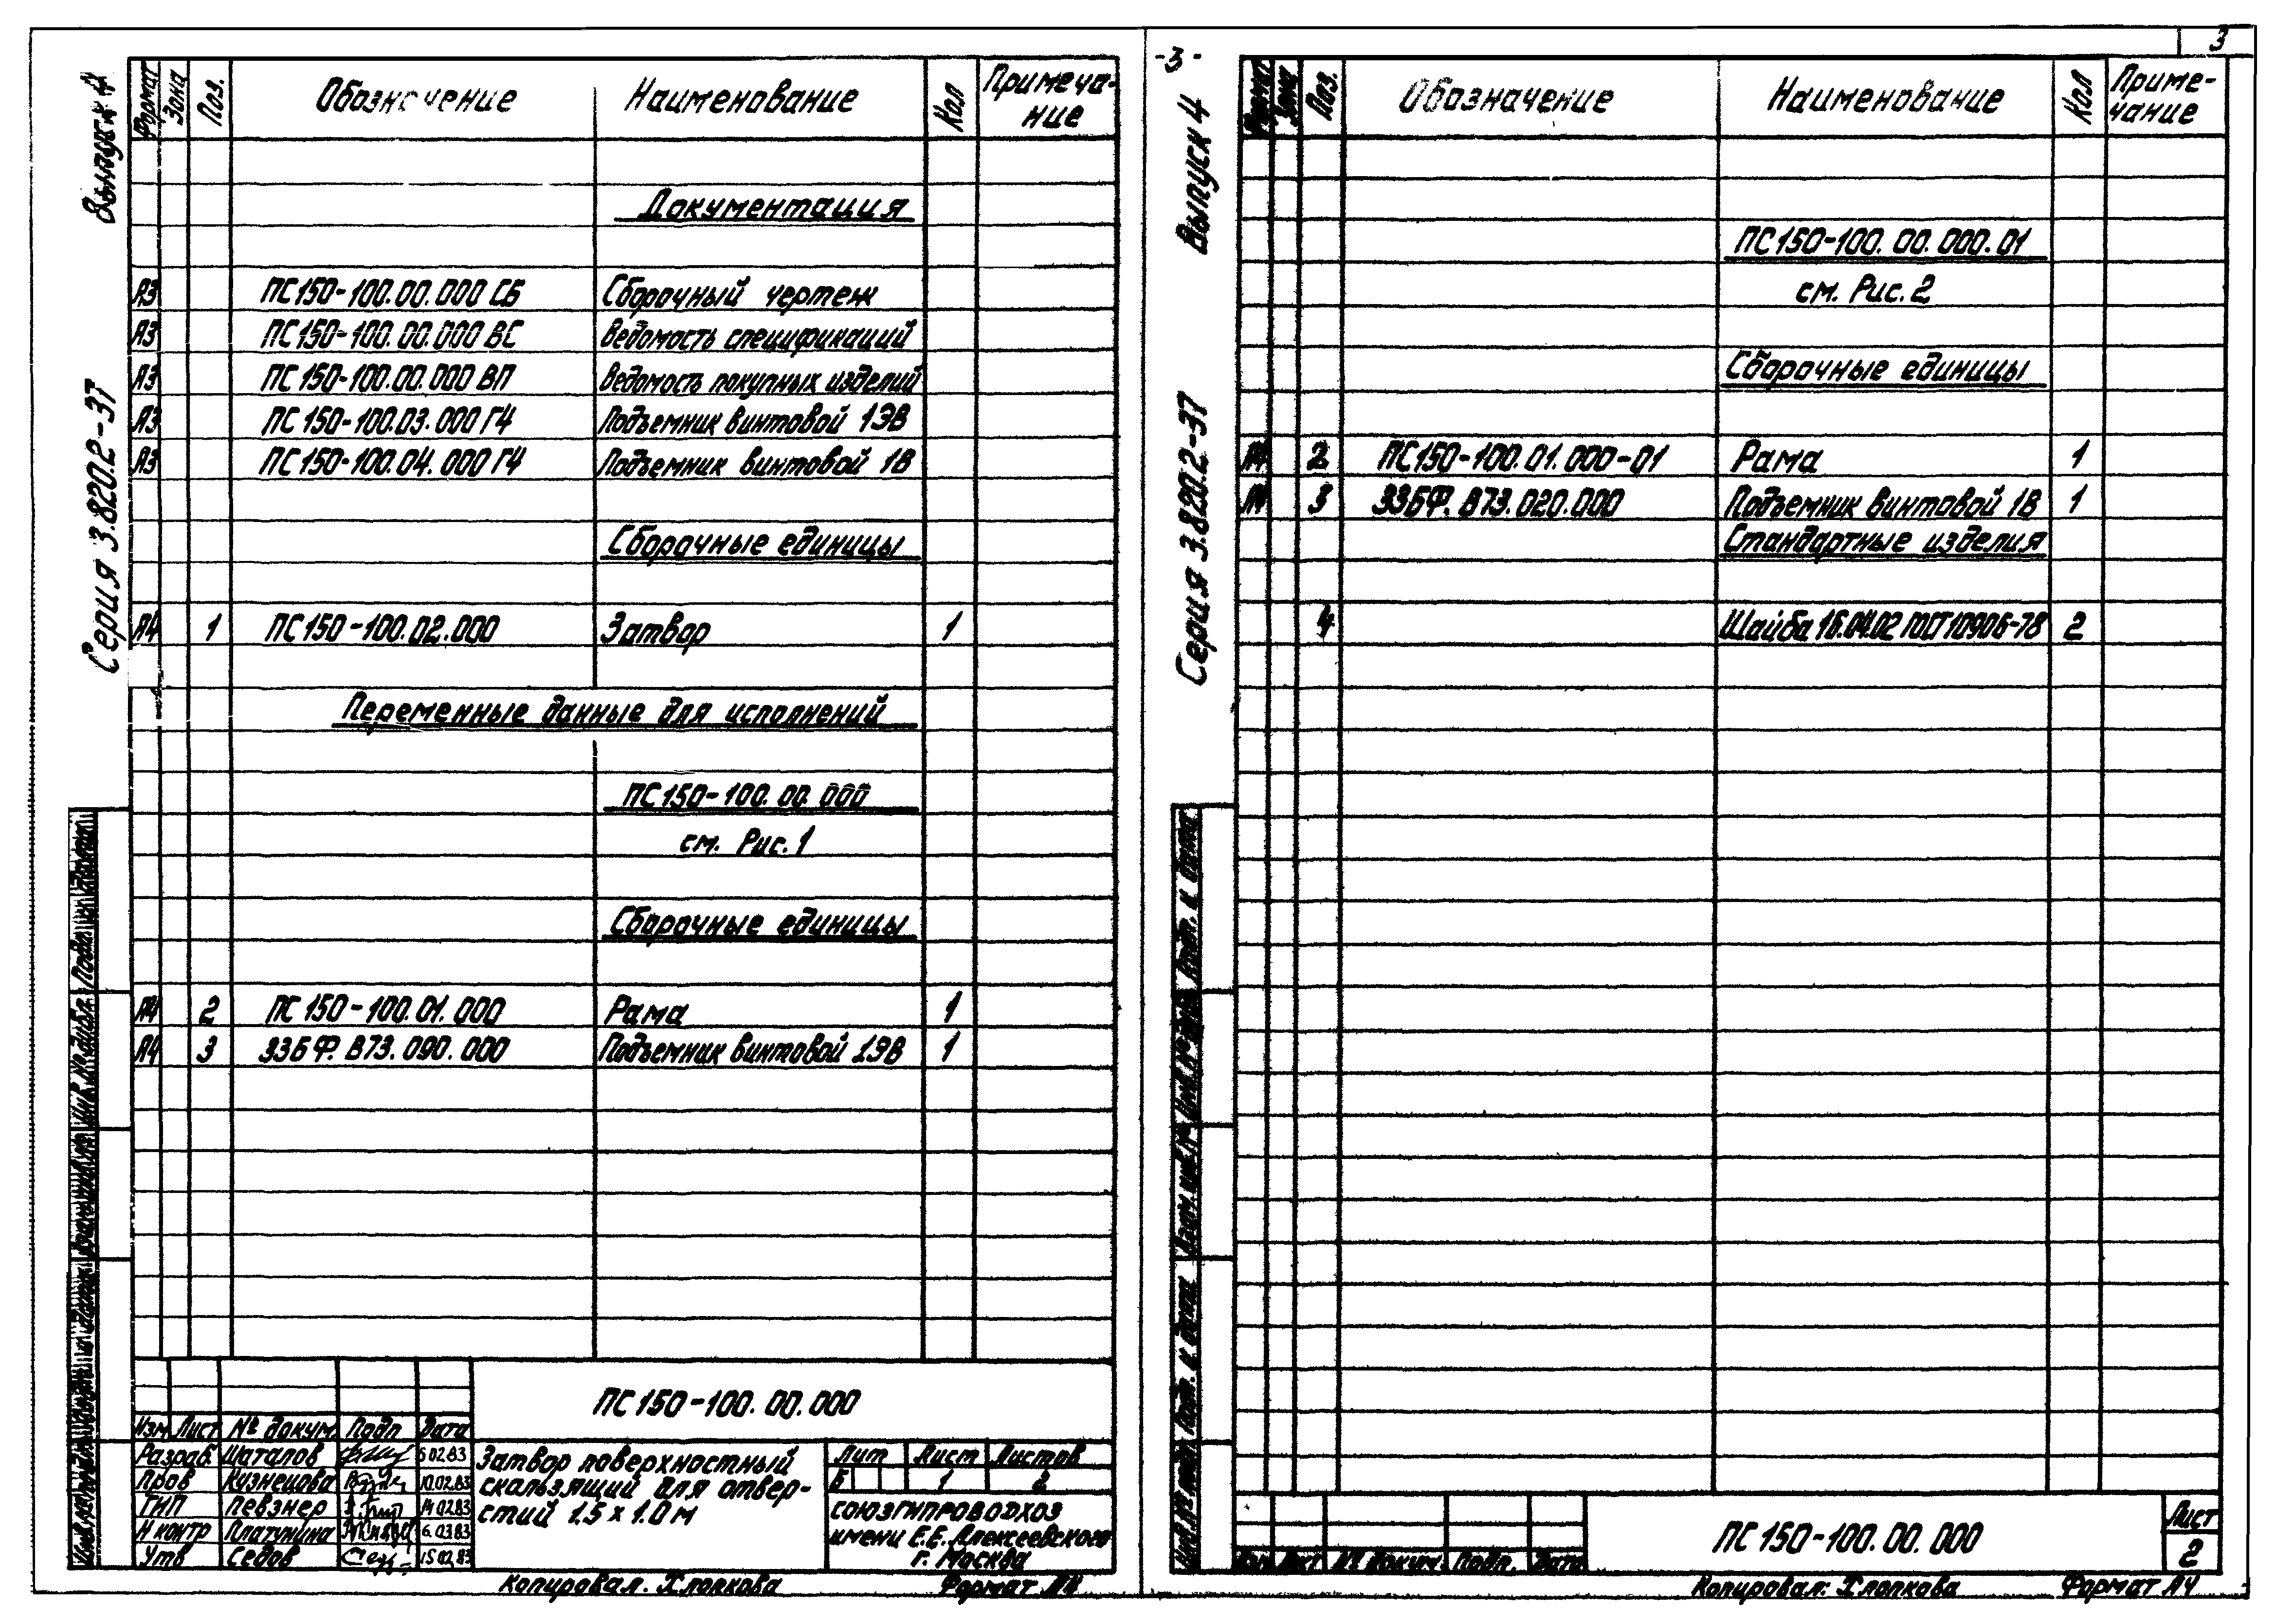 3
-3-
Выпуск 4
Серия 3.820.2-37
Формат Зона Поз. Обозначение Наименование Кол Примеча-
ние
Документация
А3 ПС150-100.00.000 СБ Сборочный чертеж
А3 ПС150-100.00.000 ВС Ведомость спецификаций
А3 ПС150-100.00.000 ВП Ведомость покупных изделий
А3 ПС150-100.03.000 ГЧ Подъемник винтовой 1ЭВ
А3 ПС150-100.04.000 ГЧ Подъемник винтовой 1В
Сборочные единицы
А4 1 ПС150-100.02.000 Затвор 1
Переменные данные для исполнений
ПС150-100.00.000
см. Рис. 1
Сборочные единицы
А4 2 ПС150-100.01.000 Рама 1
А4 3 33БФ.В73.090.000 Подъемник винтовой 1ЭВ 1
ПС150-100.00.000
Изм Лист № докум. Подп Дата
Разраб. Шаталов 6.02.83
Пров Кузнецова 10.02.83
ГИП Певзнер 14.02.83
Н контр Платунина 6.03.83
Утв Седов 15.02.83
Затвор поверхностный
скользящий для отвер-
стий 1.5 х 1.0 м
Лит Лист Листов
Б 1 2
СОЮЗГИПРОВОДХОЗ
имени Е.Е. Алексеевского
г. Москва
Копировал. Хлопкова Формат А4
Выпуск 4
Серия 3.820.2-37
Формат Зона Поз. Обозначение Наименование Кол Приме-
чание
ПС150-100.00.000.01
см. Рис. 2
Сборочные единицы
А4 2 ПС150-100.01.000-01 Рама 1
А4 3 33БФ.В73.020.000 Подъемник винтовой 1В 1
Стандартные изделия
4 Шайба 16.04.02 ГОСТ 10906-78 2
Инв.№ подл. Подп. и дата Взам. инв.№ Инв.№ дубл. Подп. и дата
Изм Лист № докум. Подп. Дата
ПС150-100.00.000
Лист
2
Копировал: Хлопкова Формат А4